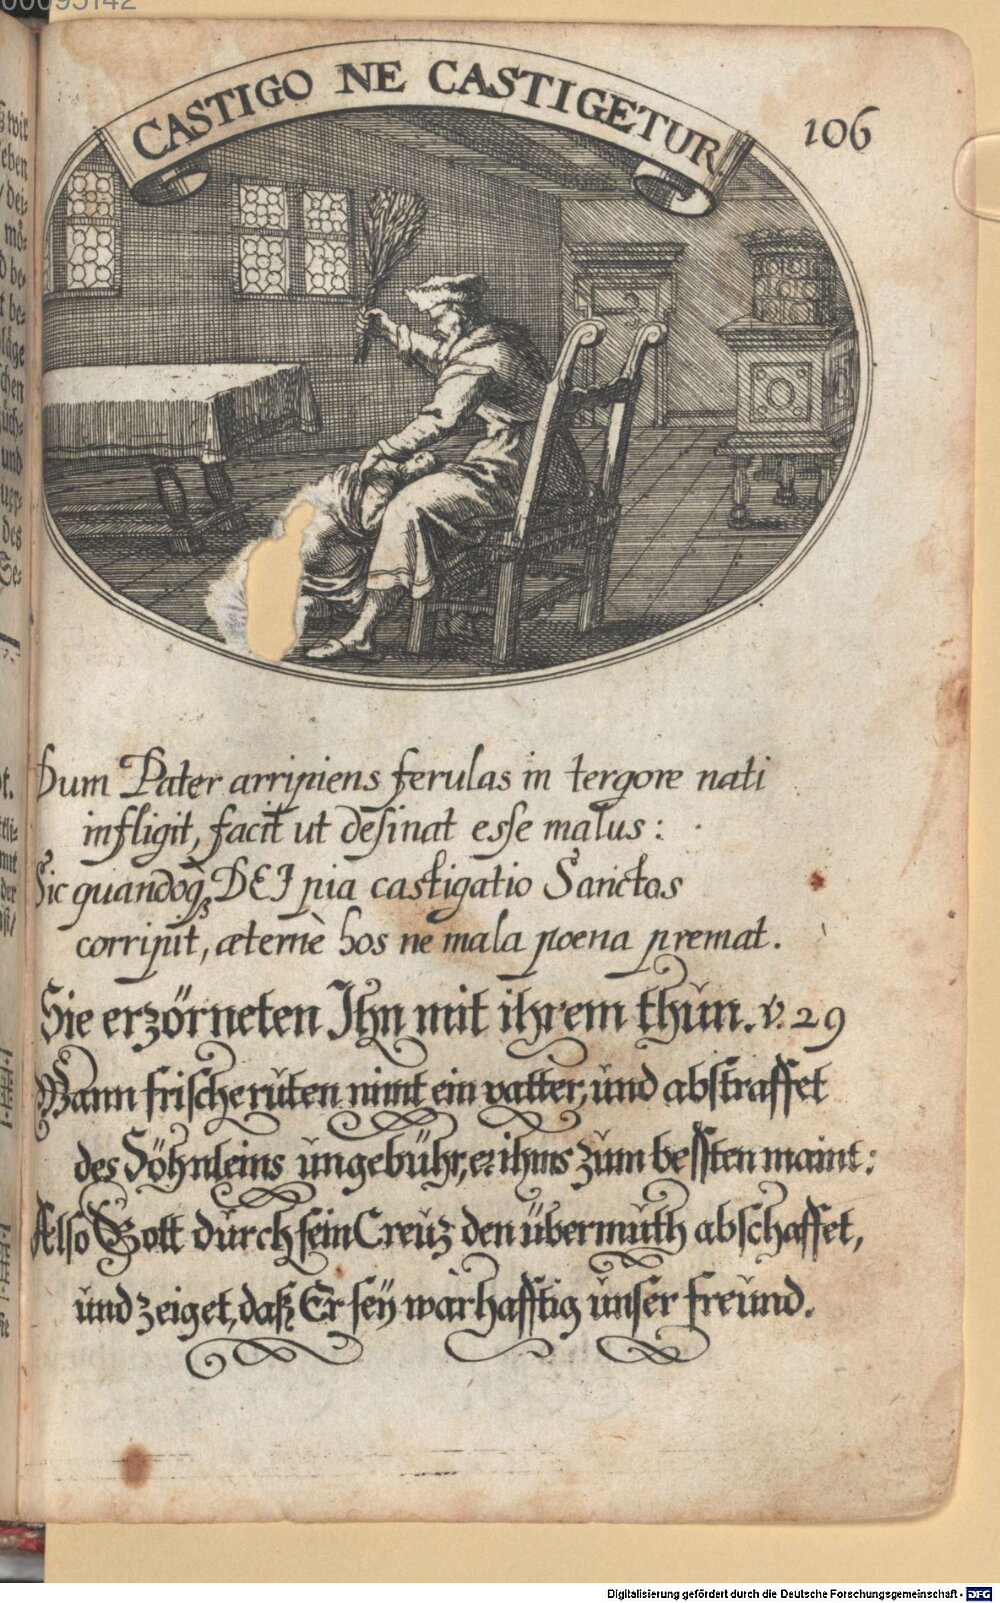 CASTIGO NE CASTIGETUR
106
Dum Pater arripiens ferulas in tergore nati
infligit, facit ut desinat esse malus:
Sic quandoq₃ DEI pia castigatio Sanctos
corripit, æternè hos ne mala poena premat.
Sie erzörneten Ihn mit ihrem thun. v. 29
Wann frische ruten nimt ein vatter, und abstraffet
des Söhnleins ungebühr, er ihms zum besten maint:
Also Gott durch sein Creuz den übermuth abschaffet,
und zeiget, daß Er sey warhafftig unser freund.
Digitalisierung gefördert durch die Deutsche Forschungsgemeinschaft - DFG